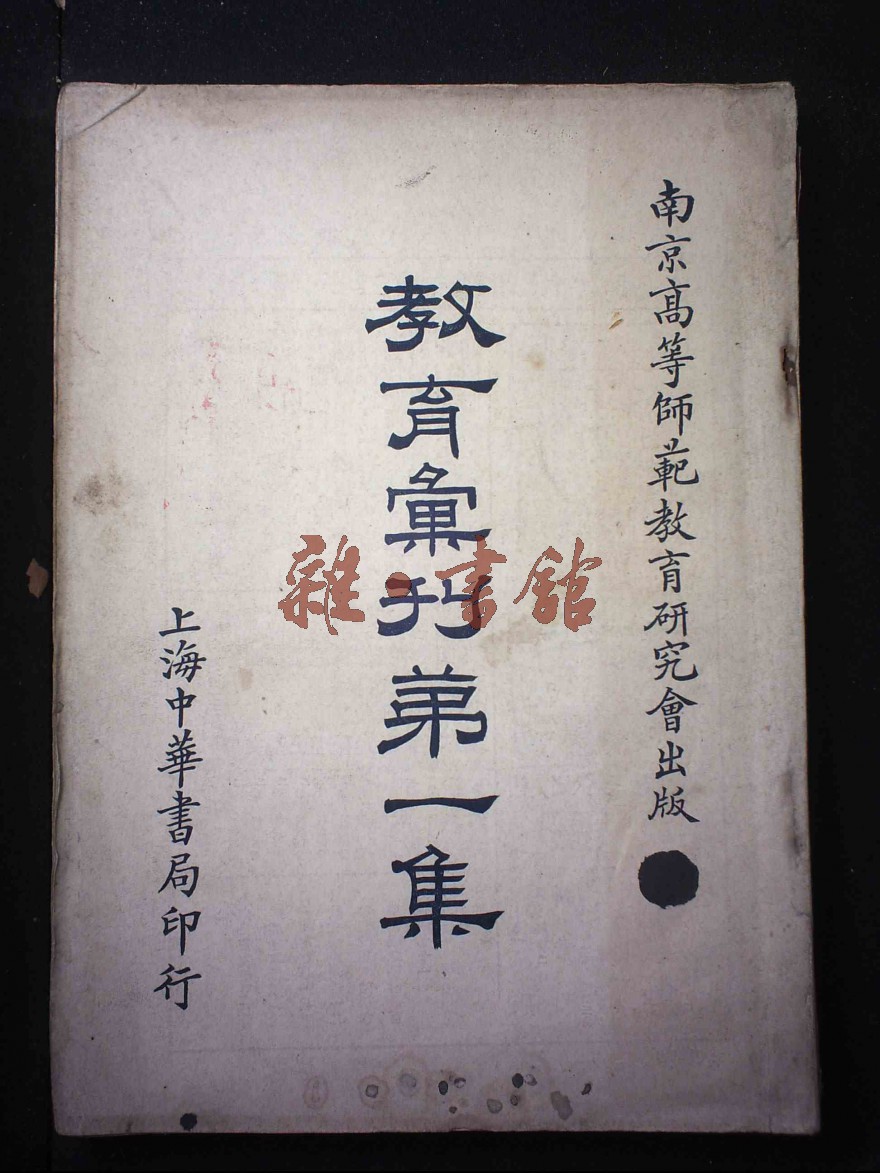 南京高等師範教育研究會出版
教育彙刊弟一集
上海中華書局印行
雜·書館